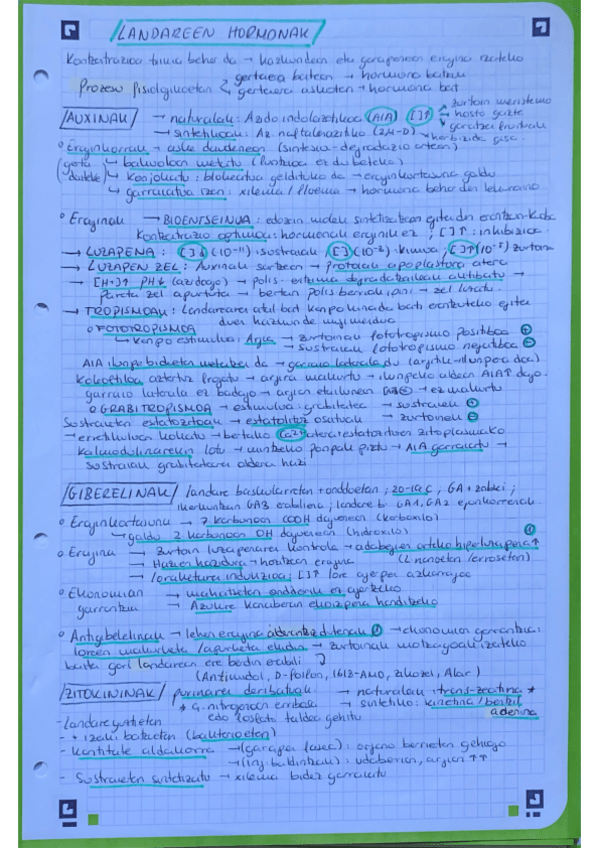 LANDAREEN HORMONAK
Kontzentrazio txikia behar da → hazkundean eta garapenean eragina izateko
gertaera batean → hormona batzuk
Prozesu fisiologikoetan
gertaera askotan → hormona bat
AUXINAK → naturalak: Azido indolazetikoa (AIA) [ ]↑
zurtoin meristemo
hosto gazte
→ sintetikoak: Az. naftalenazetiko (2,4-D) → herbizida gisa
Eraginkorrak → aske daudenean (sintesia-degradazio artean)
(gorde daiteke)
konjokatu: blokeatua geldituko da → eraginkortasuna galdu
garraiatua izan: xilema / floema → hormona behar den lekuraino
Eraginak → BIOENTSEINUA: edozein
Kontzentrazio optimoa: hormonak eraginkor ez, [ ]↑: inhibizioa
→ LUZAPENA: [ ]↓ (10⁻¹¹) sustraiak, [ ] kimua, [ ]↑ (10⁻⁵) zurtoina
→ LUZAPEN ZEL: Auxinak sartzean → protoiak apoplastora atera
→ [H+]↑ pH↓ (azidoago) → polis- degradatzaileak aktibatu →
pareta zel apurtuta → bertan polis berriak ipini → zel luzatu
→ TROPISMOAK: Landarearen atal bat kanpo kinada bati erantzuteko egiten
duen hazkunde mugimendua
FOTOTROPISMOA
kanpo estimulua: Argia → zurtoinak fototropismo positiboa +
→ sustraiak fototropismo negatiboa -
AIA ilunpe bidean metatzen da → garraio laterala du (argitik → ilunpera doa)
Koleoptiloa aztertuz frogatu → argira makurtu → ilunpeko aldean AIA↑ dago.
garraio laterala ez badago → ez makurtu
GRABITROPISMOA → estimulua grabitatea → sustraiek +
Sustraietan estatozitoak → estatolitoz osatuak → zurtoinek -
→ erretikuluan kokatu → betako Ca2+ atera estatozitoen zitoplasmako
kalmodulinarekin lotu → mintzeko ponpak piztu → AIA garraiatu →
sustraiak grabitatearen aldera hazi
GIBERELINAK / landare baskularretan + onddoetan; 20-19 C, GA + zenbaki;
merkatuan GA3 erabilena; landare b. GA1, GA2 eraginkorrenak
Eraginkortasuna → 7. karbonoan COOH dagoenean (karboxilo)
galdu 2 karbonoan OH dagoenean (hidroxilo)
Eragina → Zurtoin luzapenaren kontrola → adabegien arteko hiperluzapena ↑ +
→ Hazien hazidura → hozitzean eragina (L nanoetan /erroseten)
→ loraketaren indukzioa: [ ]↑ lore agerpen azkarragoa
Ekonomian garrantzia → mahatsetan endokarpo ez agertzeko
→ Azukre kanaberan ekoizpena handitzeko
Antigibelelinak → lehen eragina alderantziz dutenak → ekonomian garrantzia:
loreen makurketa / apurketa ekidin → zurtoinak motzagoak izateko
baita gari landarean ere berdin erabili
(Antimidol, D-Foilon, 1612-AMO, zikozel, Alar)
ZITOKININAK / purinaren deribatuak → naturalak: trans-zeatina *
* 6. nitrogenoan erribosa → sintetiko: kinetina / benzil adenina
edo fosfato taldea gehitu
- Landare guztietan
- + izaki batzuetan (bakterioetan)
- Kantitate aldakorra → (garapen fasez): organo berrietan gehiago
→ (ing. baldintzak): udaberrian, argian ↑↑
- Sustraietan sintetizatu → xilema bidez garraiatu